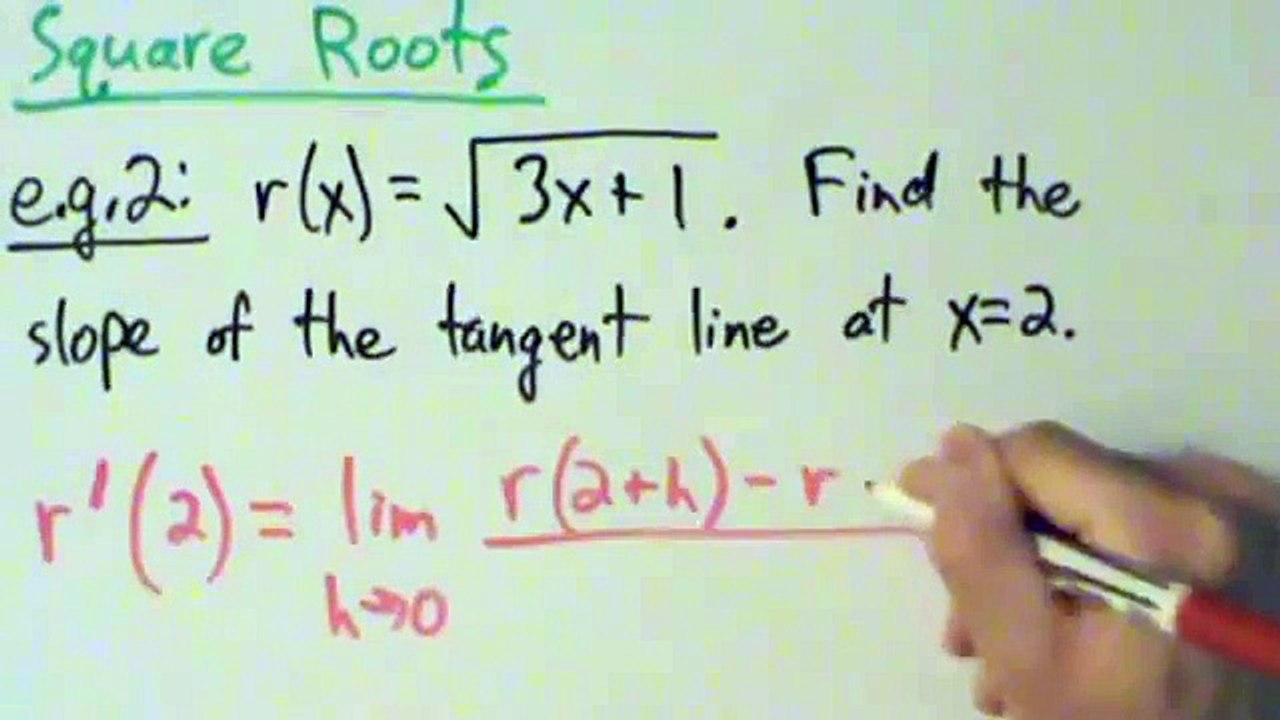 Square Roots
e.g.2: r(x) = √3x+1. Find the
slope of the tangent line at x=2.
r'(2) = lim r(2+h) - r
h→0